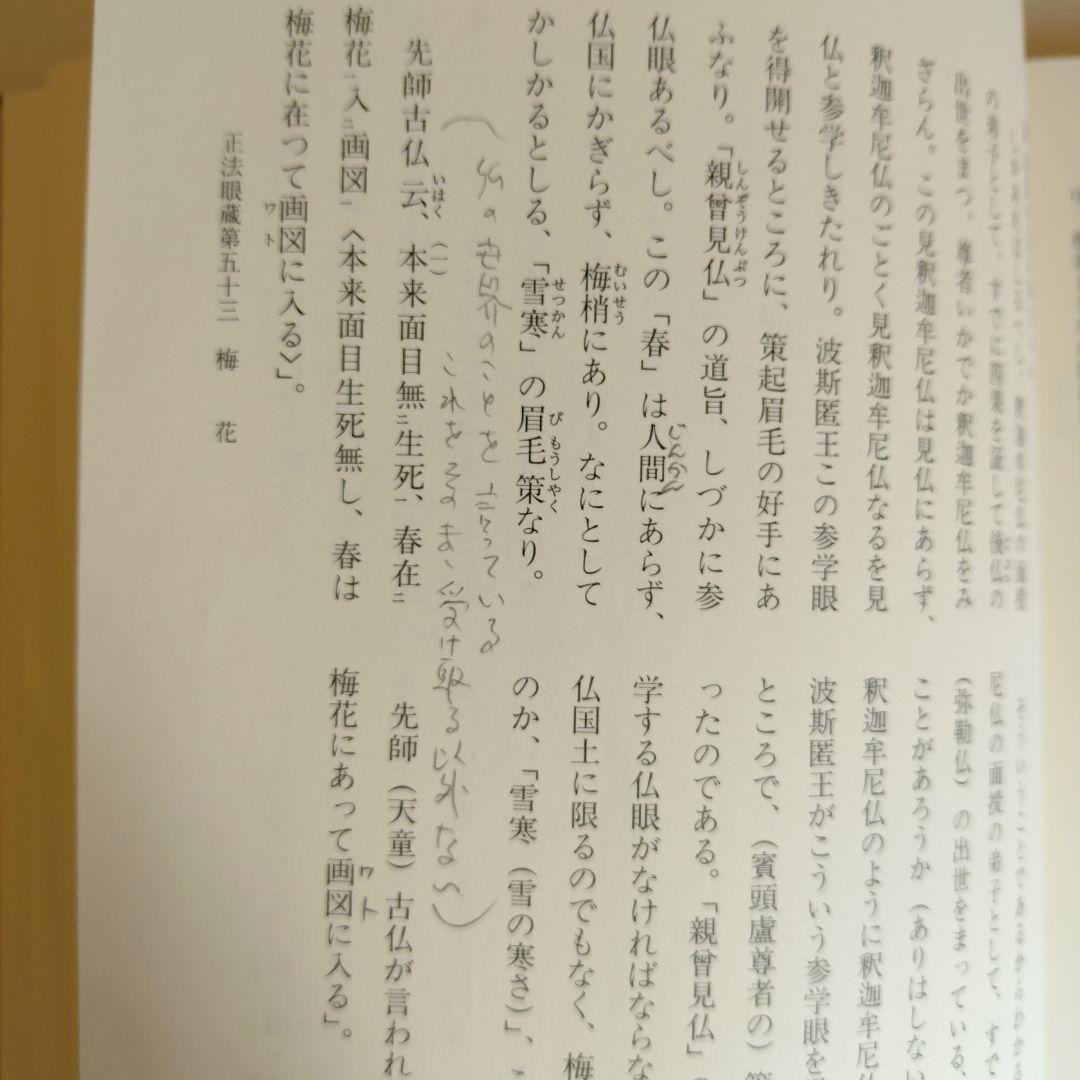 の弟子として、すでに四果を証して後仏の
出世をまつ。尊者いかでか釈迦牟尼仏をみ
ざらん。この見釈迦牟尼仏は見仏にあらず、
釈迦牟尼仏のごとく見釈迦牟尼仏なるを見
仏と参学しきたれり。波斯匿王この参学眼
を得開せるところに、策起眉毛の好手にあ
ふなり。「親曾見仏」の道旨、しづかに参
しんぞうけんぶつ
仏眼あるべし。この「春」は人間にあらず、
じんかん
仏国にかぎらず、梅梢にあり。なにとして
むいせう
かしかるとしる、「雪寒」の眉毛策なり。
せつかん
び もうしやく
(仏の世界のことを言っている
これをそのまゝ受け取る以外ない)
先師古仏云、本来面目無㆓生死㆒、春在㆓
いはく
(一)
梅花㆒入㆓画図㆒〈本来面目生死無し、春は
梅花に在つて画図に入る〉」。
ワト
正法眼蔵第五十三 梅 花
そういうことであるからかかる
尼仏の面授の弟子として、すで
(弥勒仏)の出世をまっている、
ことがあろうか(ありはしない
釈迦牟尼仏のように釈迦牟尼仏
波斯匿王がこういう参学眼を
ところで、(賓頭盧尊者の)策
ったのである。「親曾見仏」の
学する仏眼がなければならな
仏国土に限るのでもなく、梅
のか、「雪寒(雪の寒さ)」、こ
先師(天童)古仏が言われ
梅花にあって画図に入る」。
ワト